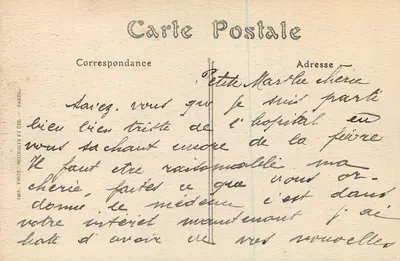 Carte Postale
Correspondance
Adresse
Petite Marthe chérie
Saviez-vous que je suis parti
bien bien triste de l'hopital en
vous sachant encore de la fièvre
Il faut etre raisonnable ma
cherie faites ce que vous or-
donne le médecin c'est dans
votre intéret maintenant j'ai
hate d'avoir de vos nouvelles